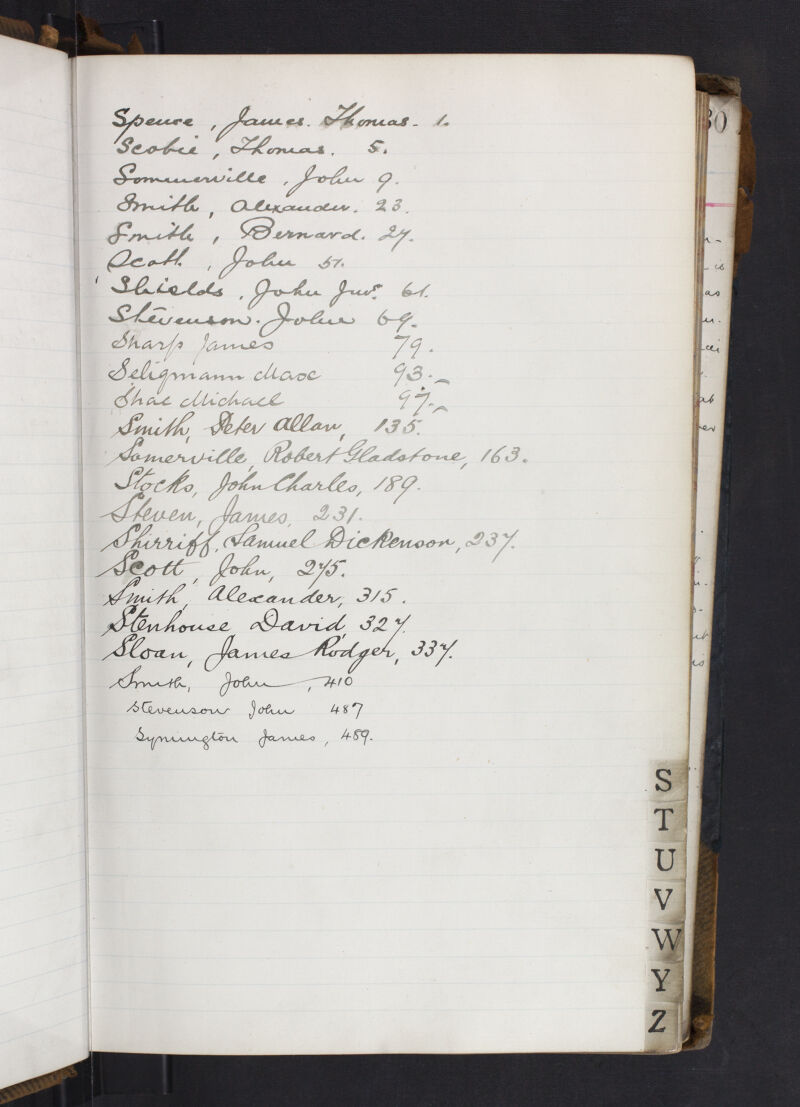 Spence, James. Thomas. 1.
Scobie, Thomas. 5.
Sommerville, John 9.
Smith, Alexander. 23.
Smith, Bernard. 27.
Scott, John 51.
Shields, John Junr. 61.
Stevenson. John 69.
Sharp James 79.
Seligmann Max 93.
Shae Michael 97.
Smith, Peter Allan, 135.
Somerville, Robert Gladstone, 163.
Stocks, John Charles, 189.
Steven, James, 231.
Shirriff, Samuel Dickenson, 237.
Scott, John, 275.
Smith, Alexander, 315.
Stenhouse David, 327.
Sloan, James Rodger, 337.
Smith, John, 410
Stevenson John 487
Symington James, 489.
30
S
T
U
V
W
Y
Z